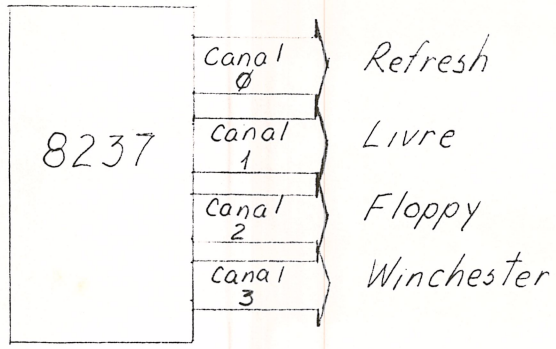 8237
Canal
0
Refresh
Canal
1
Livre
Canal
2
Floppy
Canal
3
Winchester